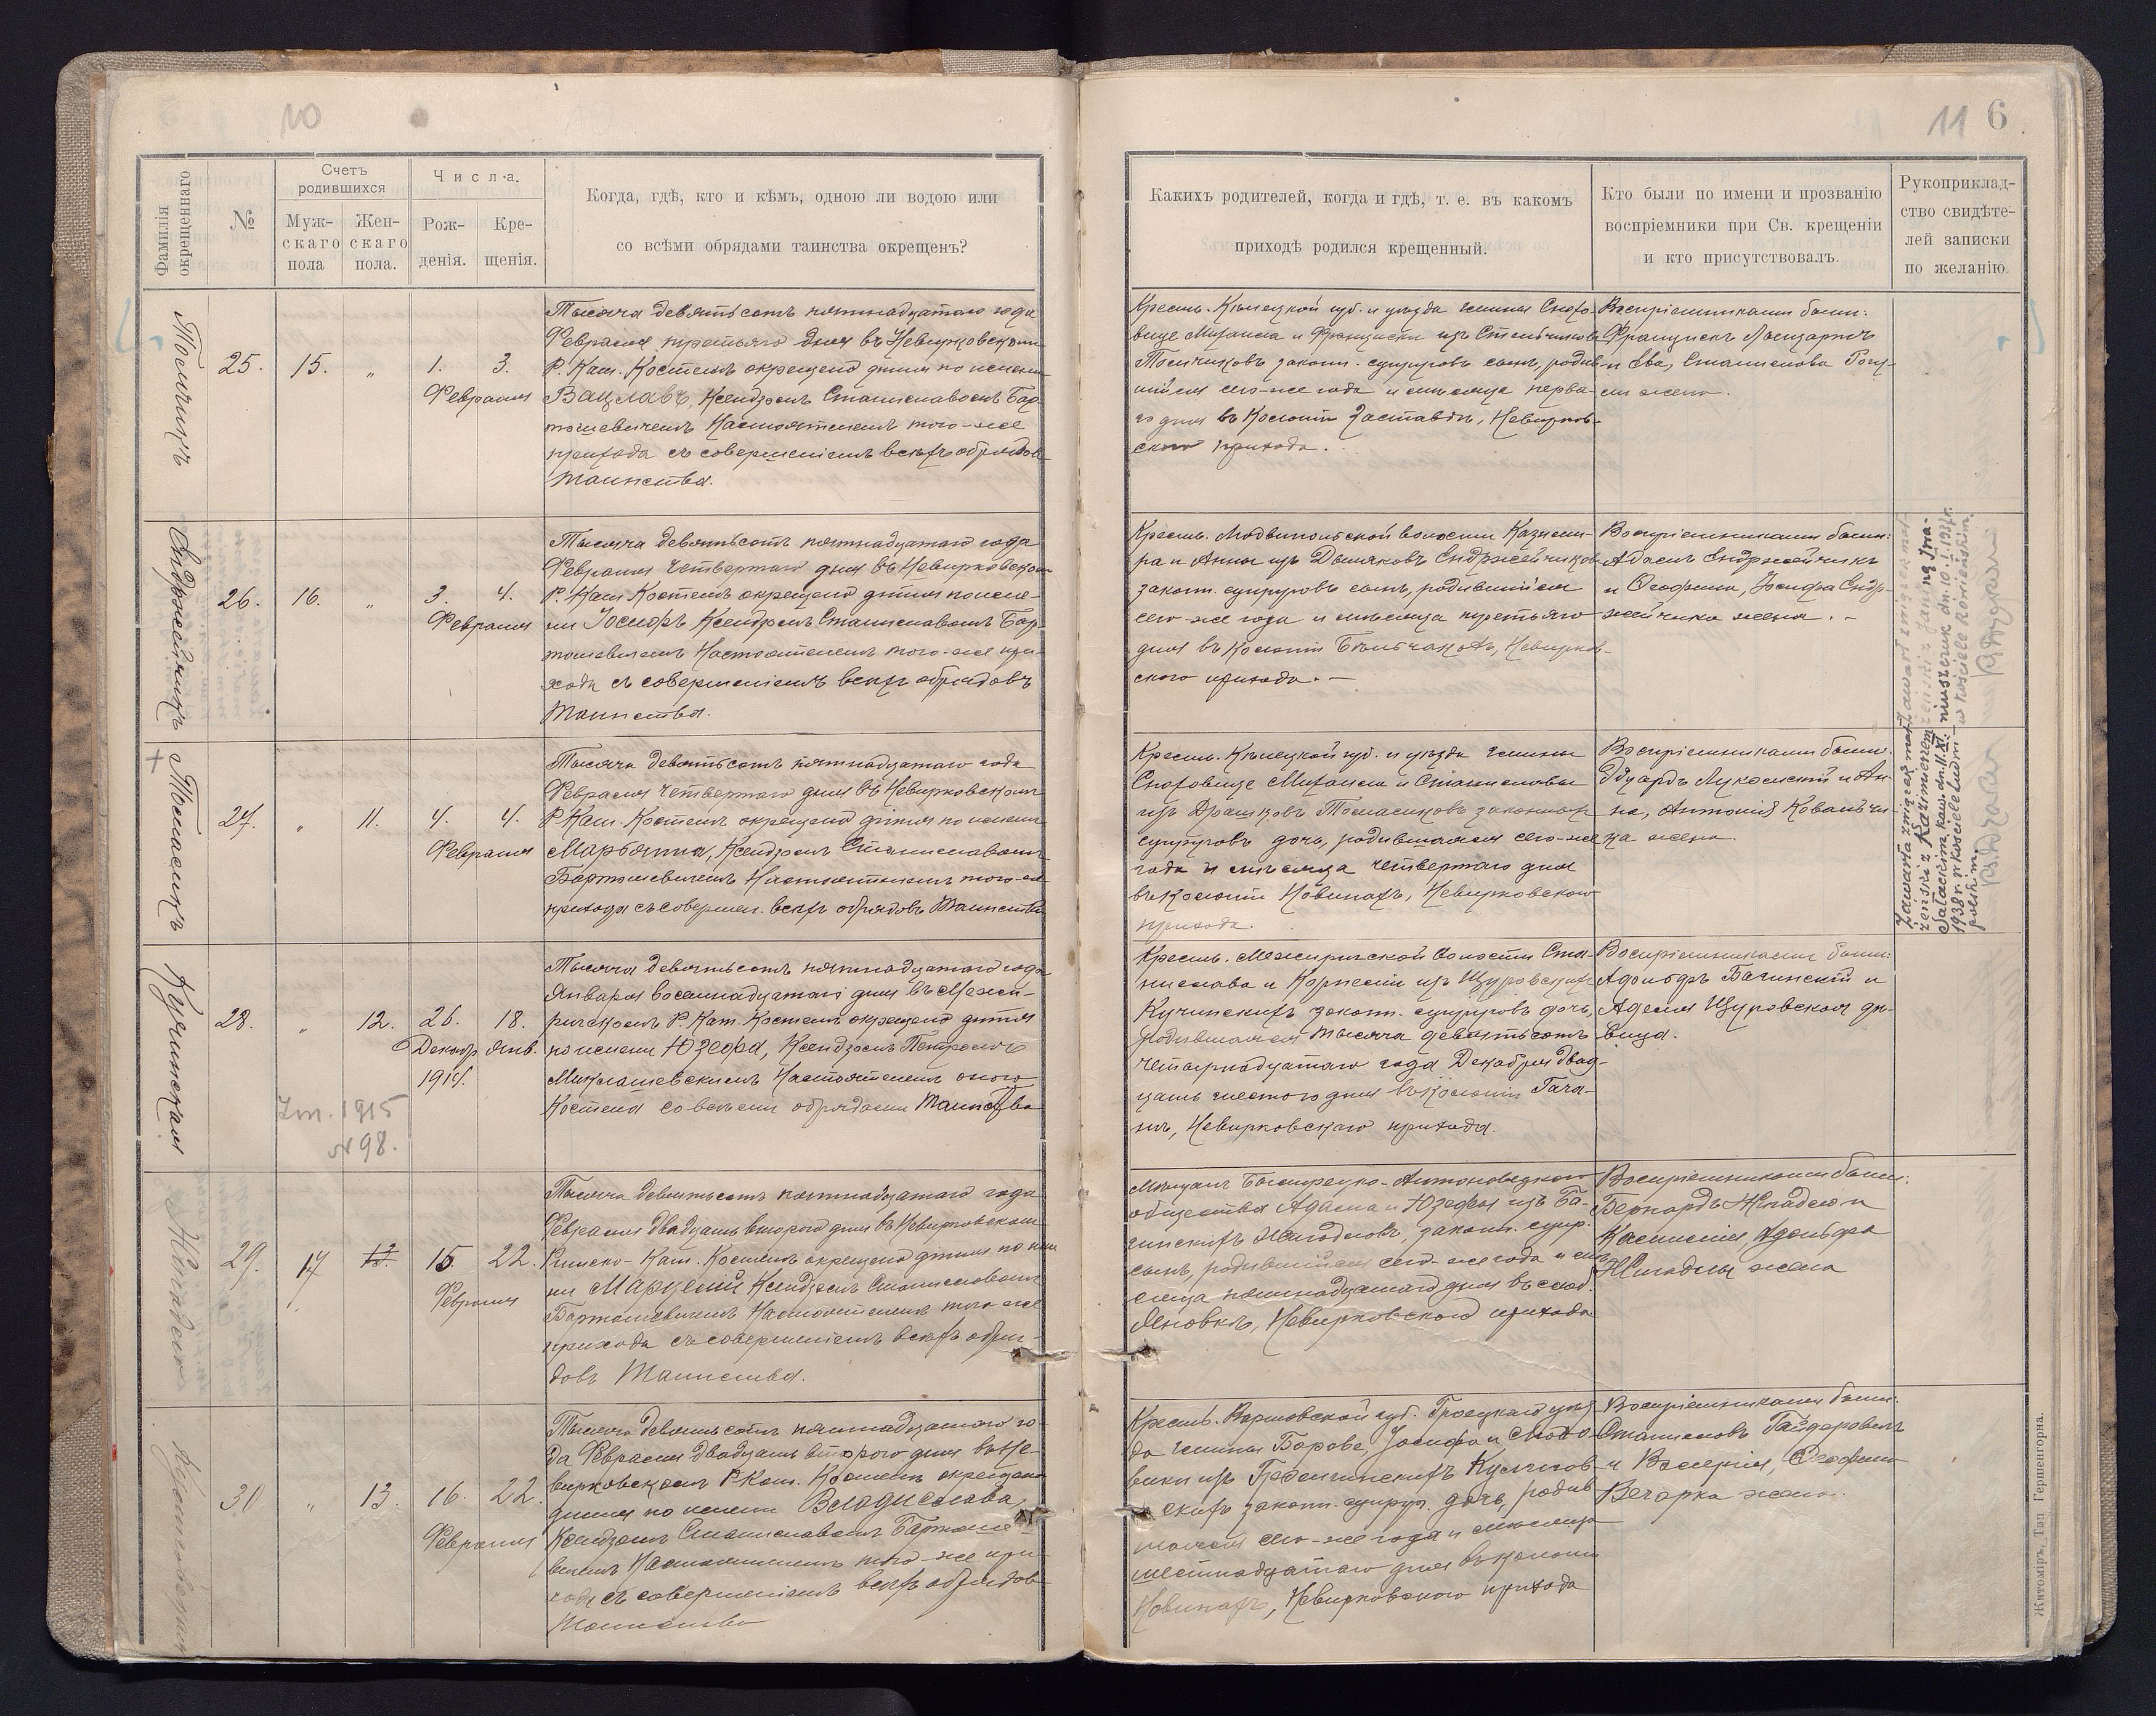 10
Фамилія окрещеннаго
№
Счетъ родившихся
Муж-скаго пола
Жен-скаго пола.
Числа.
Рож-денія.
Кре-щенія.
Когда, гдѣ, кто и кѣмъ, одною ли водою или
со всѣми обрядами таинства окрещенъ?
25.
15.
"
1.
3.
Февраля
Тысяча девятьсотъ пятнадцатаго года
Февраля третьяго дня въ Невирковскомъ
Р. Кат. Костелѣ окрещено дитя по имени
Вацлавъ, Ксендзомъ Станиславомъ Бар-
тошевичемъ Настоятелемъ того-же
прихода съ совершеніемъ всѣхъ обрядовъ
Таинства.
Ендржейчикъ
26.
16.
"
3.
4.
Февраля
Тысяча девятьсотъ пятнадцатаго года
Февраля четвертаго дня въ Невирковскомъ
Р. Кат. Костелѣ окрещено дитя по име-
ни Іосифъ Ксендзомъ Станиславомъ Бар-
тошевичемъ Настоятелемъ того-же при-
хода съ совершеніемъ всѣхъ обрядовъ
Таинства.
+ Томасикъ
27.
"
11.
4.
4.
Февраля
Тысяча девятьсотъ пятнадцатаго года
Февраля четвертаго дня въ Невирковскомъ
Р. Кат. Костелѣ окрещено дитя по имени
Марьянна, Ксендзомъ Станиславомъ
Бартошевичемъ Настоятелемъ того-же
прихода съ совершен. всѣхъ обрядовъ Таинства
Кучинская
28.
"
12.
26.
18.
Декабр.
Янв.
1914.
Zm. 1915
N 98.
Тысяча девятьсотъ пятнадцатаго года
Января восемнадцатаго дня въ Межи-
ричскомъ Р. Кат. Костелѣ окрещено дитя
по имени Юзефа, Ксендзомъ Петромъ
Миклашевскимъ Настоятелемъ оного
Костела со всѣми обрядами Таинства
29.
17
12.
15.
22.
Февраля
Тысяча девятьсотъ пятнадцатаго года
Февраля двадцать второго дня въ Невирковскомъ
Римско-Кат. Костелѣ окрещено дитя по име
ни Марцелій Ксендзомъ Станиславомъ
Бартошевичемъ Настоятелемъ того-же
прихода съ совершеніемъ всѣхъ обря-
довъ Таинства.
30
"
13.
16.
22.
Февраля
Тысяча девятьсотъ пятнадцатаго го-
да Февраля двадцать второго дня въ Не-
вирковскомъ Р. Кат. Костелѣ окрещено
дитя по имени Владислава,
Ксендзомъ Станиславомъ Бартоше-
вичемъ Настоятелемъ того-же при-
хода съ совершеніемъ всѣхъ обрядовъ
Таинства
11 6
Какихъ родителей, когда и гдѣ, т. е. въ какомъ
приходѣ родился крещенный.
Кто были по имени и прозванію
воспріемники при Св. крещеніи
и кто присутствовалъ.
Рукоприклад-
ство свидѣте-
лей записки
по желанію.
Крест. Кѣлецкой губ. и уѣзда гмины Снохо-
вице Михаила и Франциски изъ
законн. супруговъ сынъ, родив-
шійся сего-же года и мѣсяца перва-
го дня въ Колоніи Заставѣ, Невирков-
ского прихода.
Воспріемниками были:
Францискъ
и Ева, Станислава
жена.
Крест. Людвипольской волости Казими-
ра и Анны изъ Ендржейчиковъ
законн. супруговъ сынъ, родившійся
сего-же года и мѣсяца третьяго
дня въ Колоніи Невирков-
ского прихода.
Воспріемниками были:
Адамъ Ендржейчикъ
и Іосифа Ендр-
жейчика жена.
Крест. Кѣлецкой губ. и уѣзда гмины
Сноховице Михаила и Станиславы
изъ Томасиковъ законныхъ
супруговъ дочь, родившаяся сего-же
года и мѣсяца четвертаго дня
въ колоніи Новинахъ, Невирковского
прихода.
Воспріемниками были:
Эдуардъ Лукомскій и Ан-
на, Антонія Ковальчи-
ка жена
Zawarła związek mał-
żeński z Kazimierzem
kaw. dn. 11.XI.
1938 r. w kościele Ludwi-
polskim.
Zawarł związek mał-
żeński z Janiną
dn. 10.I.1937 r.
w kościele
Крест. Межиричской волости Ста-
нислава и Корнеліи изъ Щуровскихъ
Кучинскихъ законн. супруговъ дочь,
родившаяся Тысяча девятьсотъ
четырнадцатаго года Декабря двад-
цать шестого дня въ колоніи Гача-
хъ, Невирковскаго прихода.
Воспріемниками были:
Адольфъ Бачинскій и
Аделя Щуровская дѣ-
вица.
общества Адама и Юзефы изъ Ба-
чинскихъ законн. супр.
сынъ, родившійся сего-же года и мѣ-
сяца пятнадцатаго дня въ
Яновкѣ, Невирковского прихода
Воспріемниками были:
Бернардъ и
Адольфа
жена
Крест. Варшавской губ. Гроецкаго уѣз
да гмины Борове, Іосифа и
законн. супруг. дочь, родив
шаяся сего-же года и мѣсяца
шестнадцатаго дня въ колоніи
Новинахъ, Невирковского прихода
Воспріемниками были:
Станиславъ Гайдаровичъ
и Валерія,
жена.
Житоміръ, Тип. Гершенгорна.